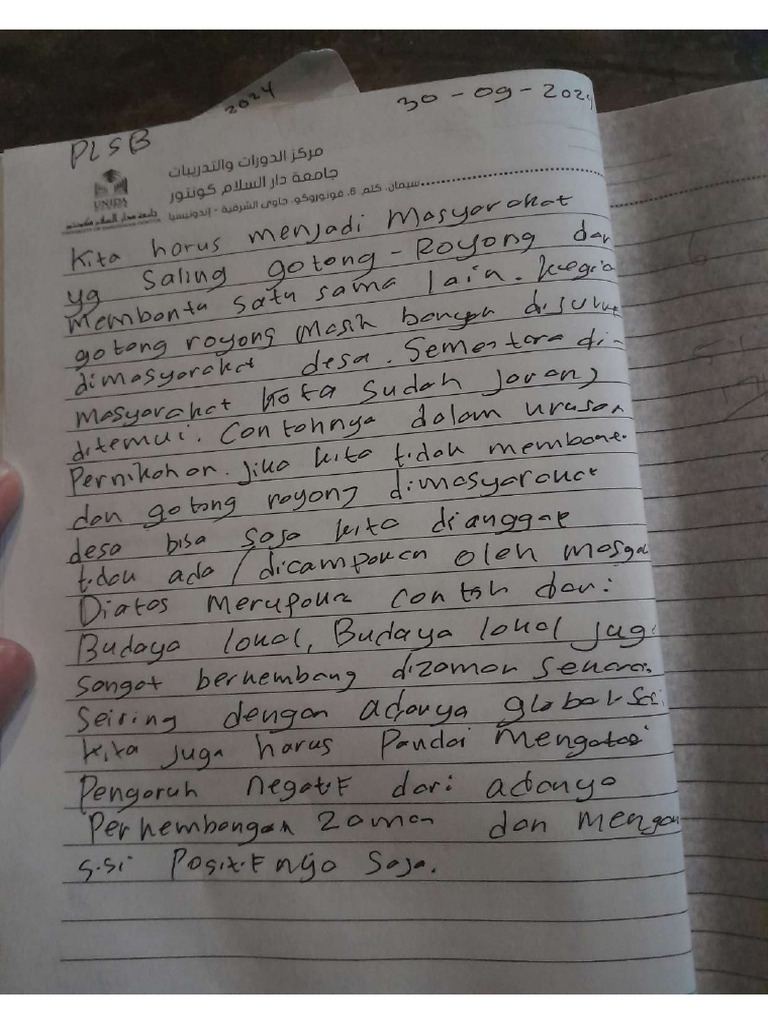 2024
30-09-2024
PLSB
مركز الدورات والتدريبات
جامعة دار السلام كونتور
سيمان، كتم 6، فونوروكو، جاوى الشرقية - إندونيسيا
UNIDA
Kita harus menjadi Masyarakat
yg Saling gotong-Royong dan
Membantu satu sama lain.
gotong royong Masih banyak
dimasyarakat desa. Sementara di-
masyarakat kota sudah jarang
ditemui. Contohnya dalam urusan
Pernikahan. Jika kita tidak
dan gotong royong dimasyarakat
desa bisa saja kita dianggap
tidak ada / dicampakan oleh
Diatas Merupakan contoh dari
Budaya lokal, Budaya lokal
sangat berkembang dizaman
Seiring dengan adanya
kita juga harus Pandai Mengatasi
Pengaruh negatif dari adanya
Perkembangan Zaman dan
sisi Positifnya saja.